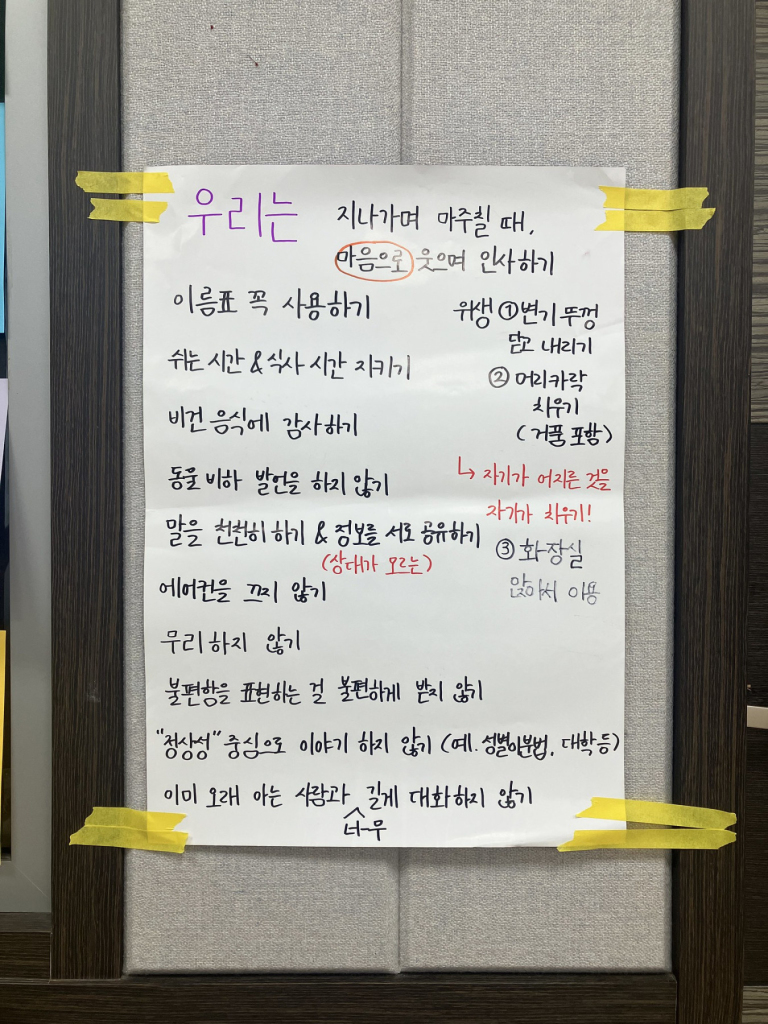 우리는
지나가며 마주칠 때,
마음으로 웃으며 인사하기
이름표 꼭 사용하기
쉬는 시간 & 식사 시간 지키기
비건 음식에 감사하기
동물 비하 발언을 하지 않기
말을 천천히 하기 & 정보를 서로 공유하기
(상대가 모르는)
에어컨을 끄지 않기
무리하지 않기
불편함을 표현하는 걸 불편하게 받지 않기
"정상성" 중심으로 이야기 하지 않기 (예. 성별이분법, 대학 등)
이미 오래 아는 사람과 길게 대화하지 않기
너무
위생 ① 변기 뚜껑
닫고 내리기
② 머리카락
치우기
(거품 포함)
↳ 자기가 어지른 것을
자기가 치우기!
③ 화장실
앉아서 이용